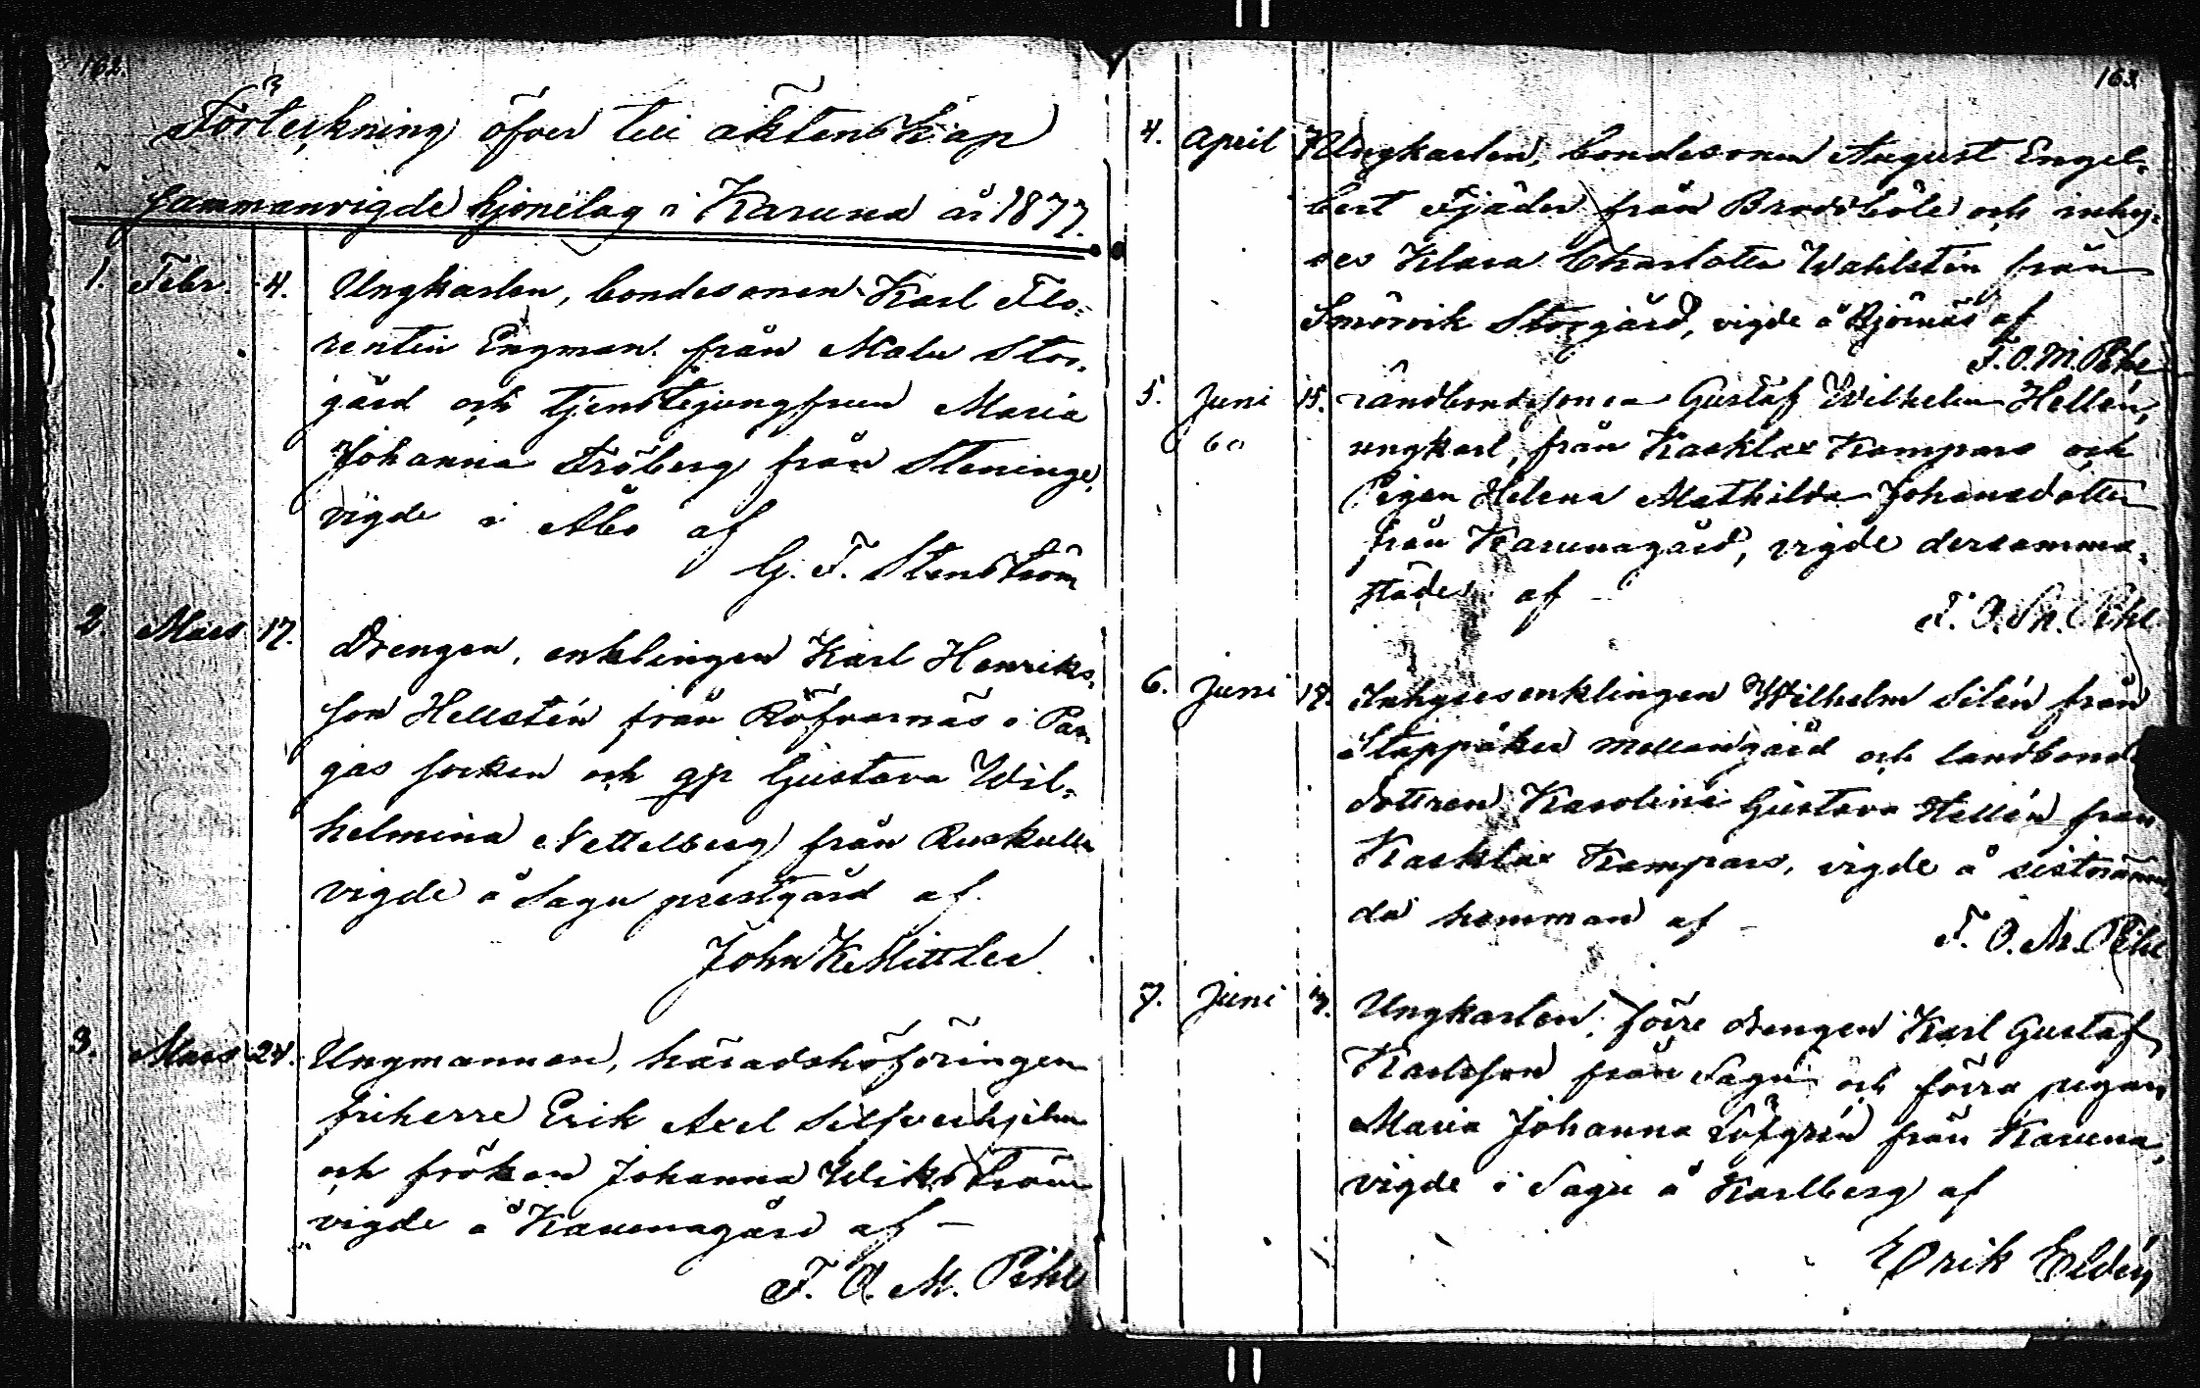 162.
Förteckning öfver till äktenskap
sammanvigde hjonelag i Karuna år 1877.
1. Febr. 4. Ungkarlen, bondesonen Karl Flo-
rentin Engman från Malu Stor-
gård och tjenstejungfrun Maria
Johanna Fröberg från Steninge,
vigde i Åbo af
G. F. Stenström
2. Mars 17. Drengen, enklingen Karl Henriks-
son Hellstén från Röfvarnäs i Par-
gas socken och gp Gustava Wil-
helmina Nettelberg från Ruskulla
vigde å Sagu prestgård af
John K Mittler
3. Mars 24. Ungmannen, häradshöfdingen
friherre Erik Axel Silfverhjelm
och fröken Johanna Wikström
vigde å Karunagård af —
F. O. M. Pihl
163.
4. April 7 Ungkarlen, bondesonen August Engel-
bert Fjäder från Brodböle och inhy-
ses Klara Charlotta Wahlstén från
Smörvik Storgård, vigde å Björnäs af
F. O. M. Pihl
5. Juni 15. Landbondesonen Gustaf Wilhelm Hellén,
ungkarl, från Kasklax Kampas och
Pigan Helena Mathilda Johansdotter
från Karunagård, vigde dersamma-
städes af —
F. O. M. Pihl
6. Juni 17. Inhysesenklingen Wilhelm Silén från
Stappåker Mellangård och landbonde
dottren Karolina Gustava Hellén från
Kasklax Kampas, vigde å sistnämn
da hemman af —
F. O. M. Pihl
7. Juni 17. Ungkarlen, förre drengen Karl Gustaf
Karlsson från Sagu och förra pigan
Maria Johanna Löfgrén från Karuna,
vigde i Sagu å Karlberg af
Erik Eldén